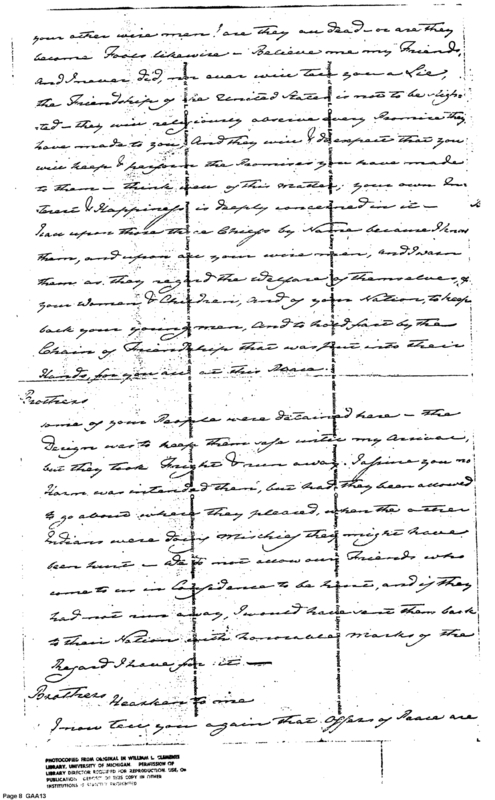 your other wise men! are they all dead - or are they
become Fools likewise - Believe me my Friends,
and I never did, nor ever will tell you a Lie,
the Friendship of the United States is not to be sligh-
ted - they will religiously observe every Promise they
have made to you, And they will & do expect that you
will keep & perform the Promises you have made
to them - think well of this matter; your own In-
terest & Happiness is deeply concerned in it -
I call upon those three Chiefs by Name because I know
them, and upon all your wise men, and I warn
them as they regard the Welfare of themselves, of
your Women & Children, and of your Nation, to keep
back your young men, and to hold fast by the
Chain of Friendship that was put into their
Hands, for you all at this Place.
Brothers
some of your People were detained here - the
Design was to keep them safe until my arrival,
but they took Fright & run away. I assure you no
Harm was intended them, but had they been allowed
to go about where they pleased, when the other
Indians were doing Mischief they might have
been hurt - We do not allow our Friends who
come to us in Confidence to be hurt, and if they
had not run away, I would have sent them back
to their Nation with honorable Marks of the
Regard I have for it -
Brothers Hearken to me
I now tell you again that Offers of Peace are
PHOTOCOPIED FROM ORIGINAL IN WILLIAM L. CLEMENTS
LIBRARY, UNIVERSITY OF MICHIGAN. PERMISSION OF
LIBRARY DIRECTOR REQUIRED FOR REPRODUCTION, USE, OR
PUBLICATION. DEPOSIT OF THIS COPY IN OTHER
INSTITUTIONS IS STRICTLY PROHIBITED
Page 8 GAA13